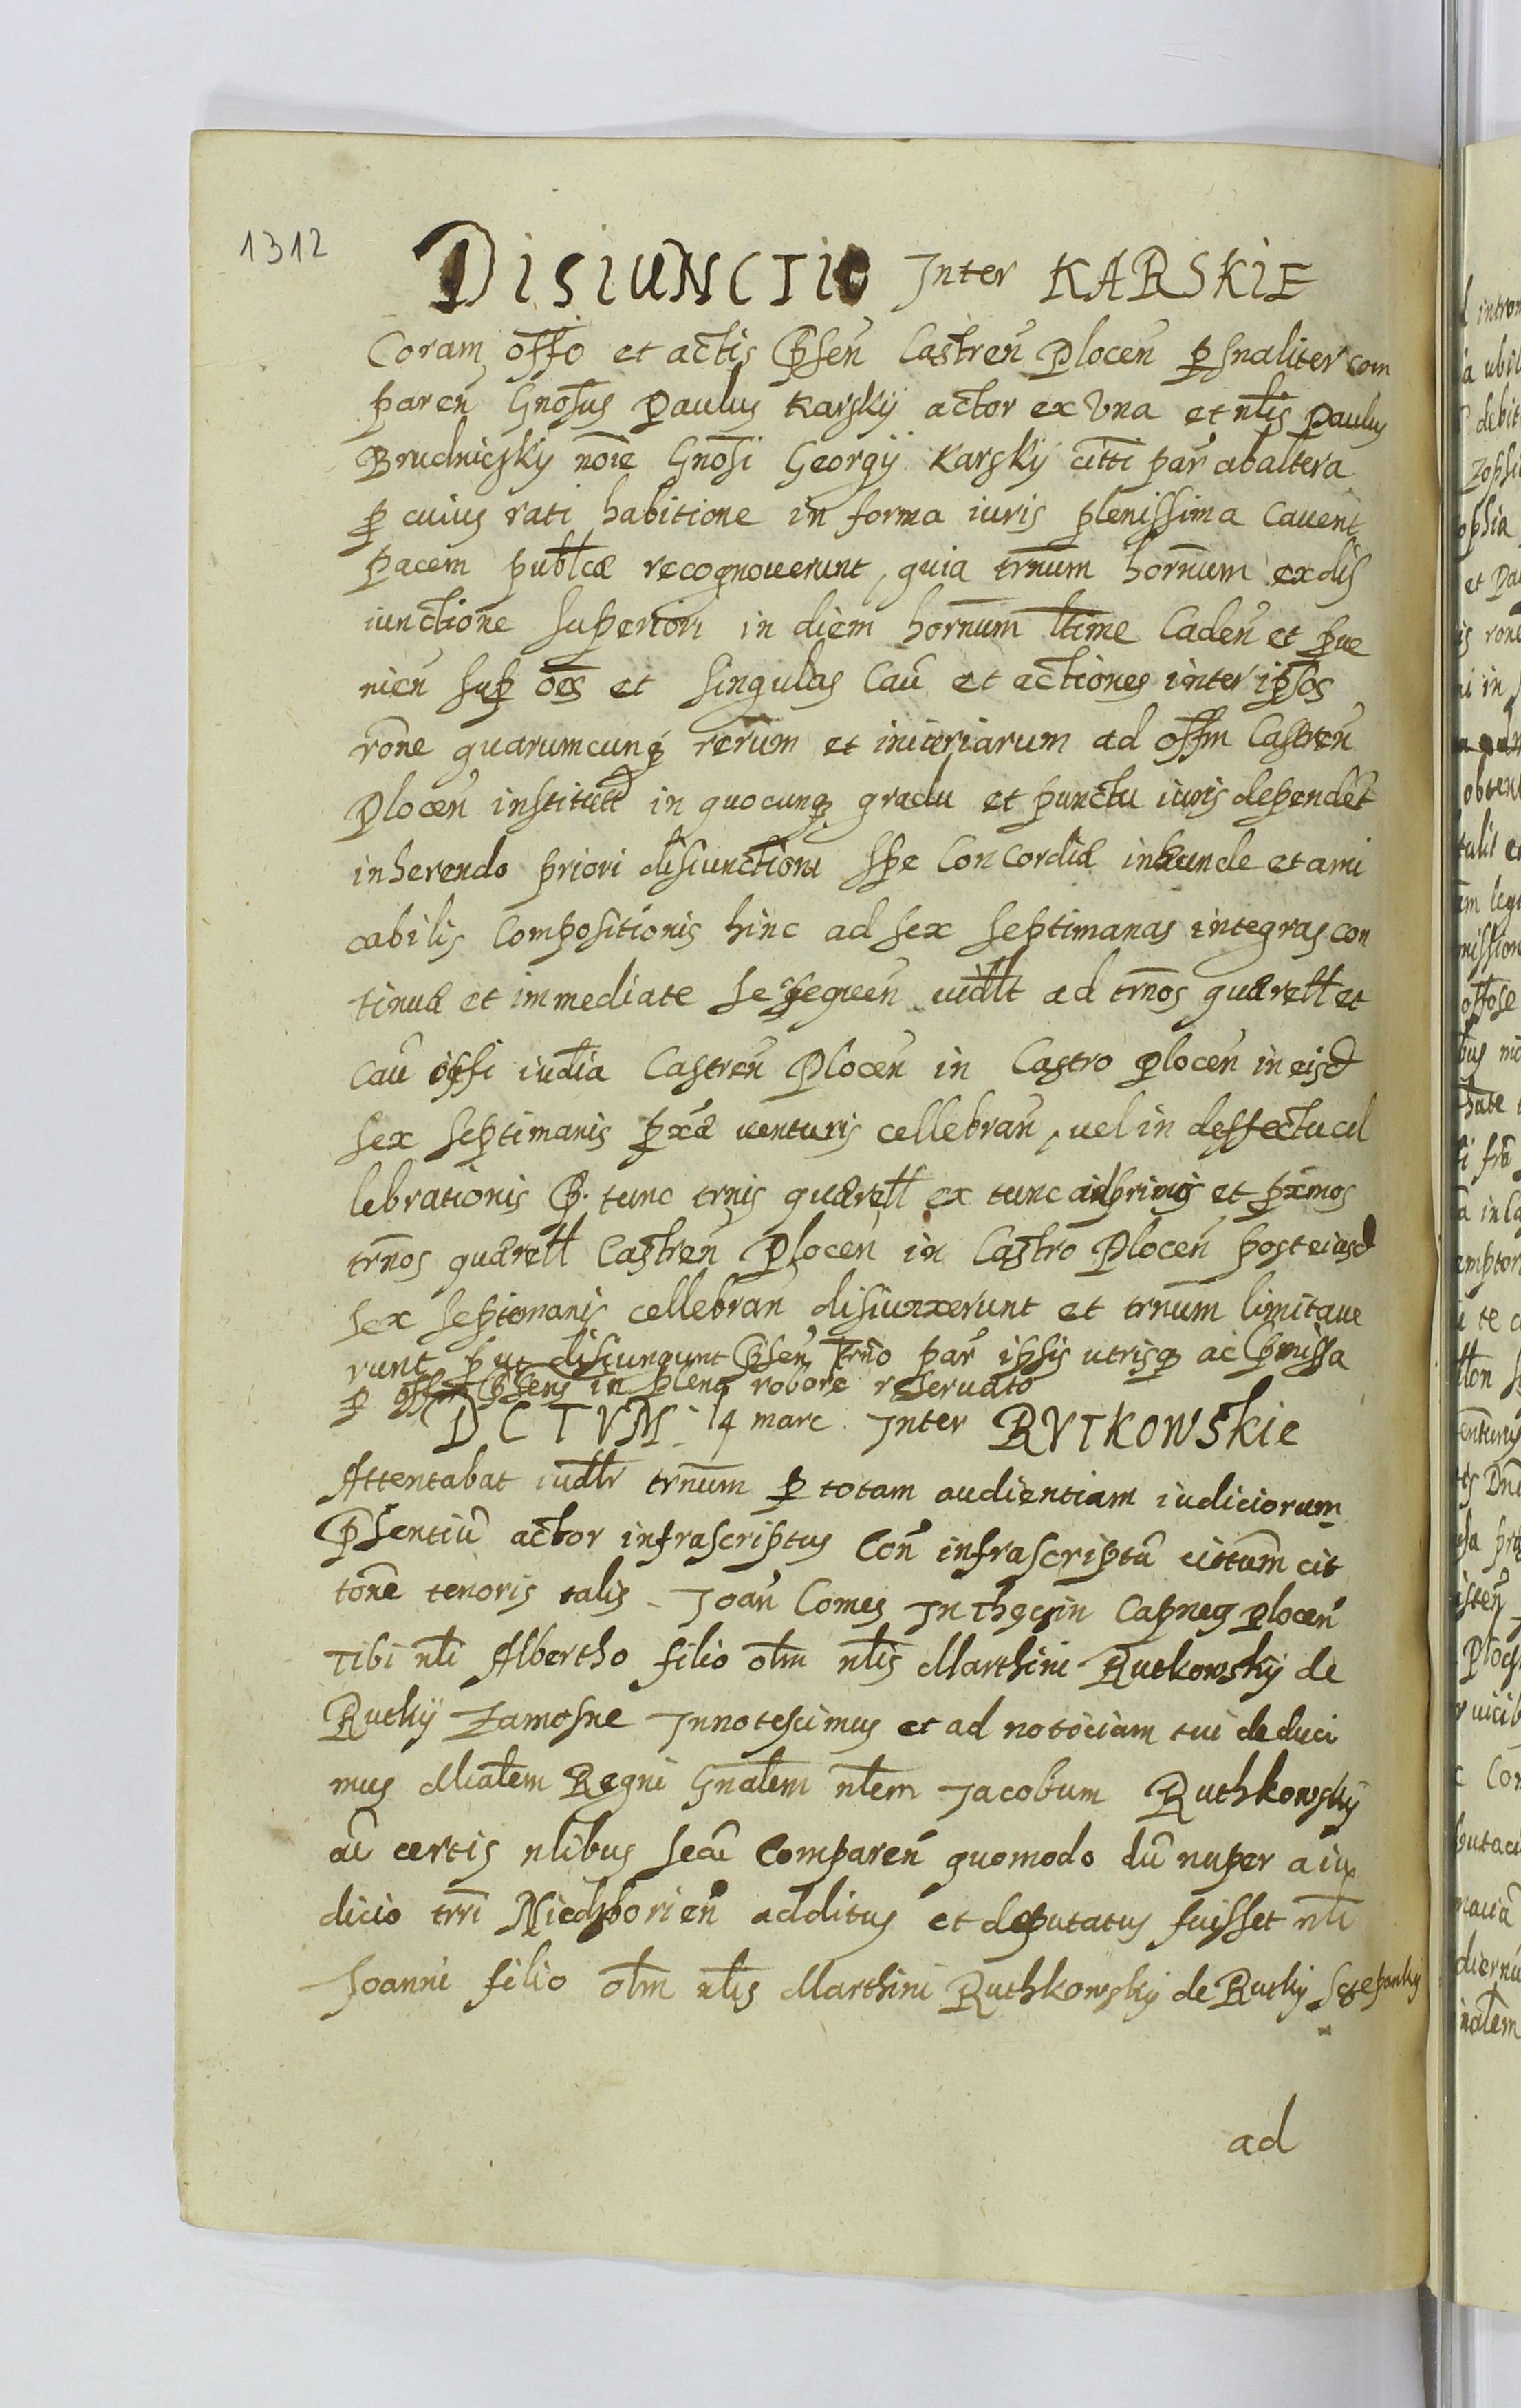 1312
DISIUNCTIO Inter KARSKIE
Coram offo et actis Pn̄sen̄ Castren̄ Plocen̄ p̱sn̄aliter com
paren̄ Gn̄osus Paulus Karskÿ actor ex Vna et nłis Paulus
Brudnicskÿ noīe Gn̄osi Georgÿ Karskÿ citti par̄ abaltera
p̱ cuius rati habitione in forma iuris plenissima cauent
pacem publcæ recognouerunt, quia trn̄um horn̄um ex dis
iunctione superiori in diem horn̄um łtime Caden̄ et pue
nien̄ sup̱ oēs et singulas Cau̅ et actiones inter ipsos
rōne quarumcunq̱ rerum et iniuriarum ad offm Castren̄
Plocen̄ institutt in quocunq̱ gradu et punctu iuris dependet
inherendo priori disiunctioni spe Concordiæ in
cabilis Compositionis hinc ad sex septimanas integras con
tinuæ et immediate se sequen̄ uidłt ad trn̄os quærełł et
Cau̅ offi iudtia Castren̄ Plocen̄ in Castro plocen̄ in eisd
sex septimanis pxæ uenturis cellebran̄, uel in deffectu cel
lebrationis P. tunc trn̄is quærełł ex tunc primos et pxmos
trn̄os quærełł Castren̄ Plocen̄ in Castro Plocen̄ post eiusd
sex septimanis cellebran̄ disiunxerunt et trn̄um limitaue
runt, put disiungunt Pn̄sen̄ Trn̄o par̄ ipsis utrisq̱ ac Pmissa
p̱ offm Pn̄sens in pleno robore reseruato
DCTVM 14 marc. Inter RVTKOWSKIE
Attentabat iudłr trn̄um p̱ totam audientiam iudiciorum
Pn̄sentiu̅ actor infrascriptus Con̄ infrascriptu̅ cittum̄ cit
ton̄e tenoris talis. Joan̄ Comes In Thęczin Capneg plocen̄
Tibi nłi Albertho filio ołm nłis Marthini Rutkowskÿ de
Rutkÿ Zamosne Innotescimus et ad notociam tui deduci
mus Miałem Regni Gnałem nłem Jacobum Ruthkowskÿ
cu̅ certis nlibus secu̅ Comparen̄ quomodo du̅ nuper a iu
dicio trri Niedzborien̄ additus et deputatus fuisset nłi
Joanni filio ołm nłis Marthini Ruthkowskÿ de Rutky Sczepanky
ad